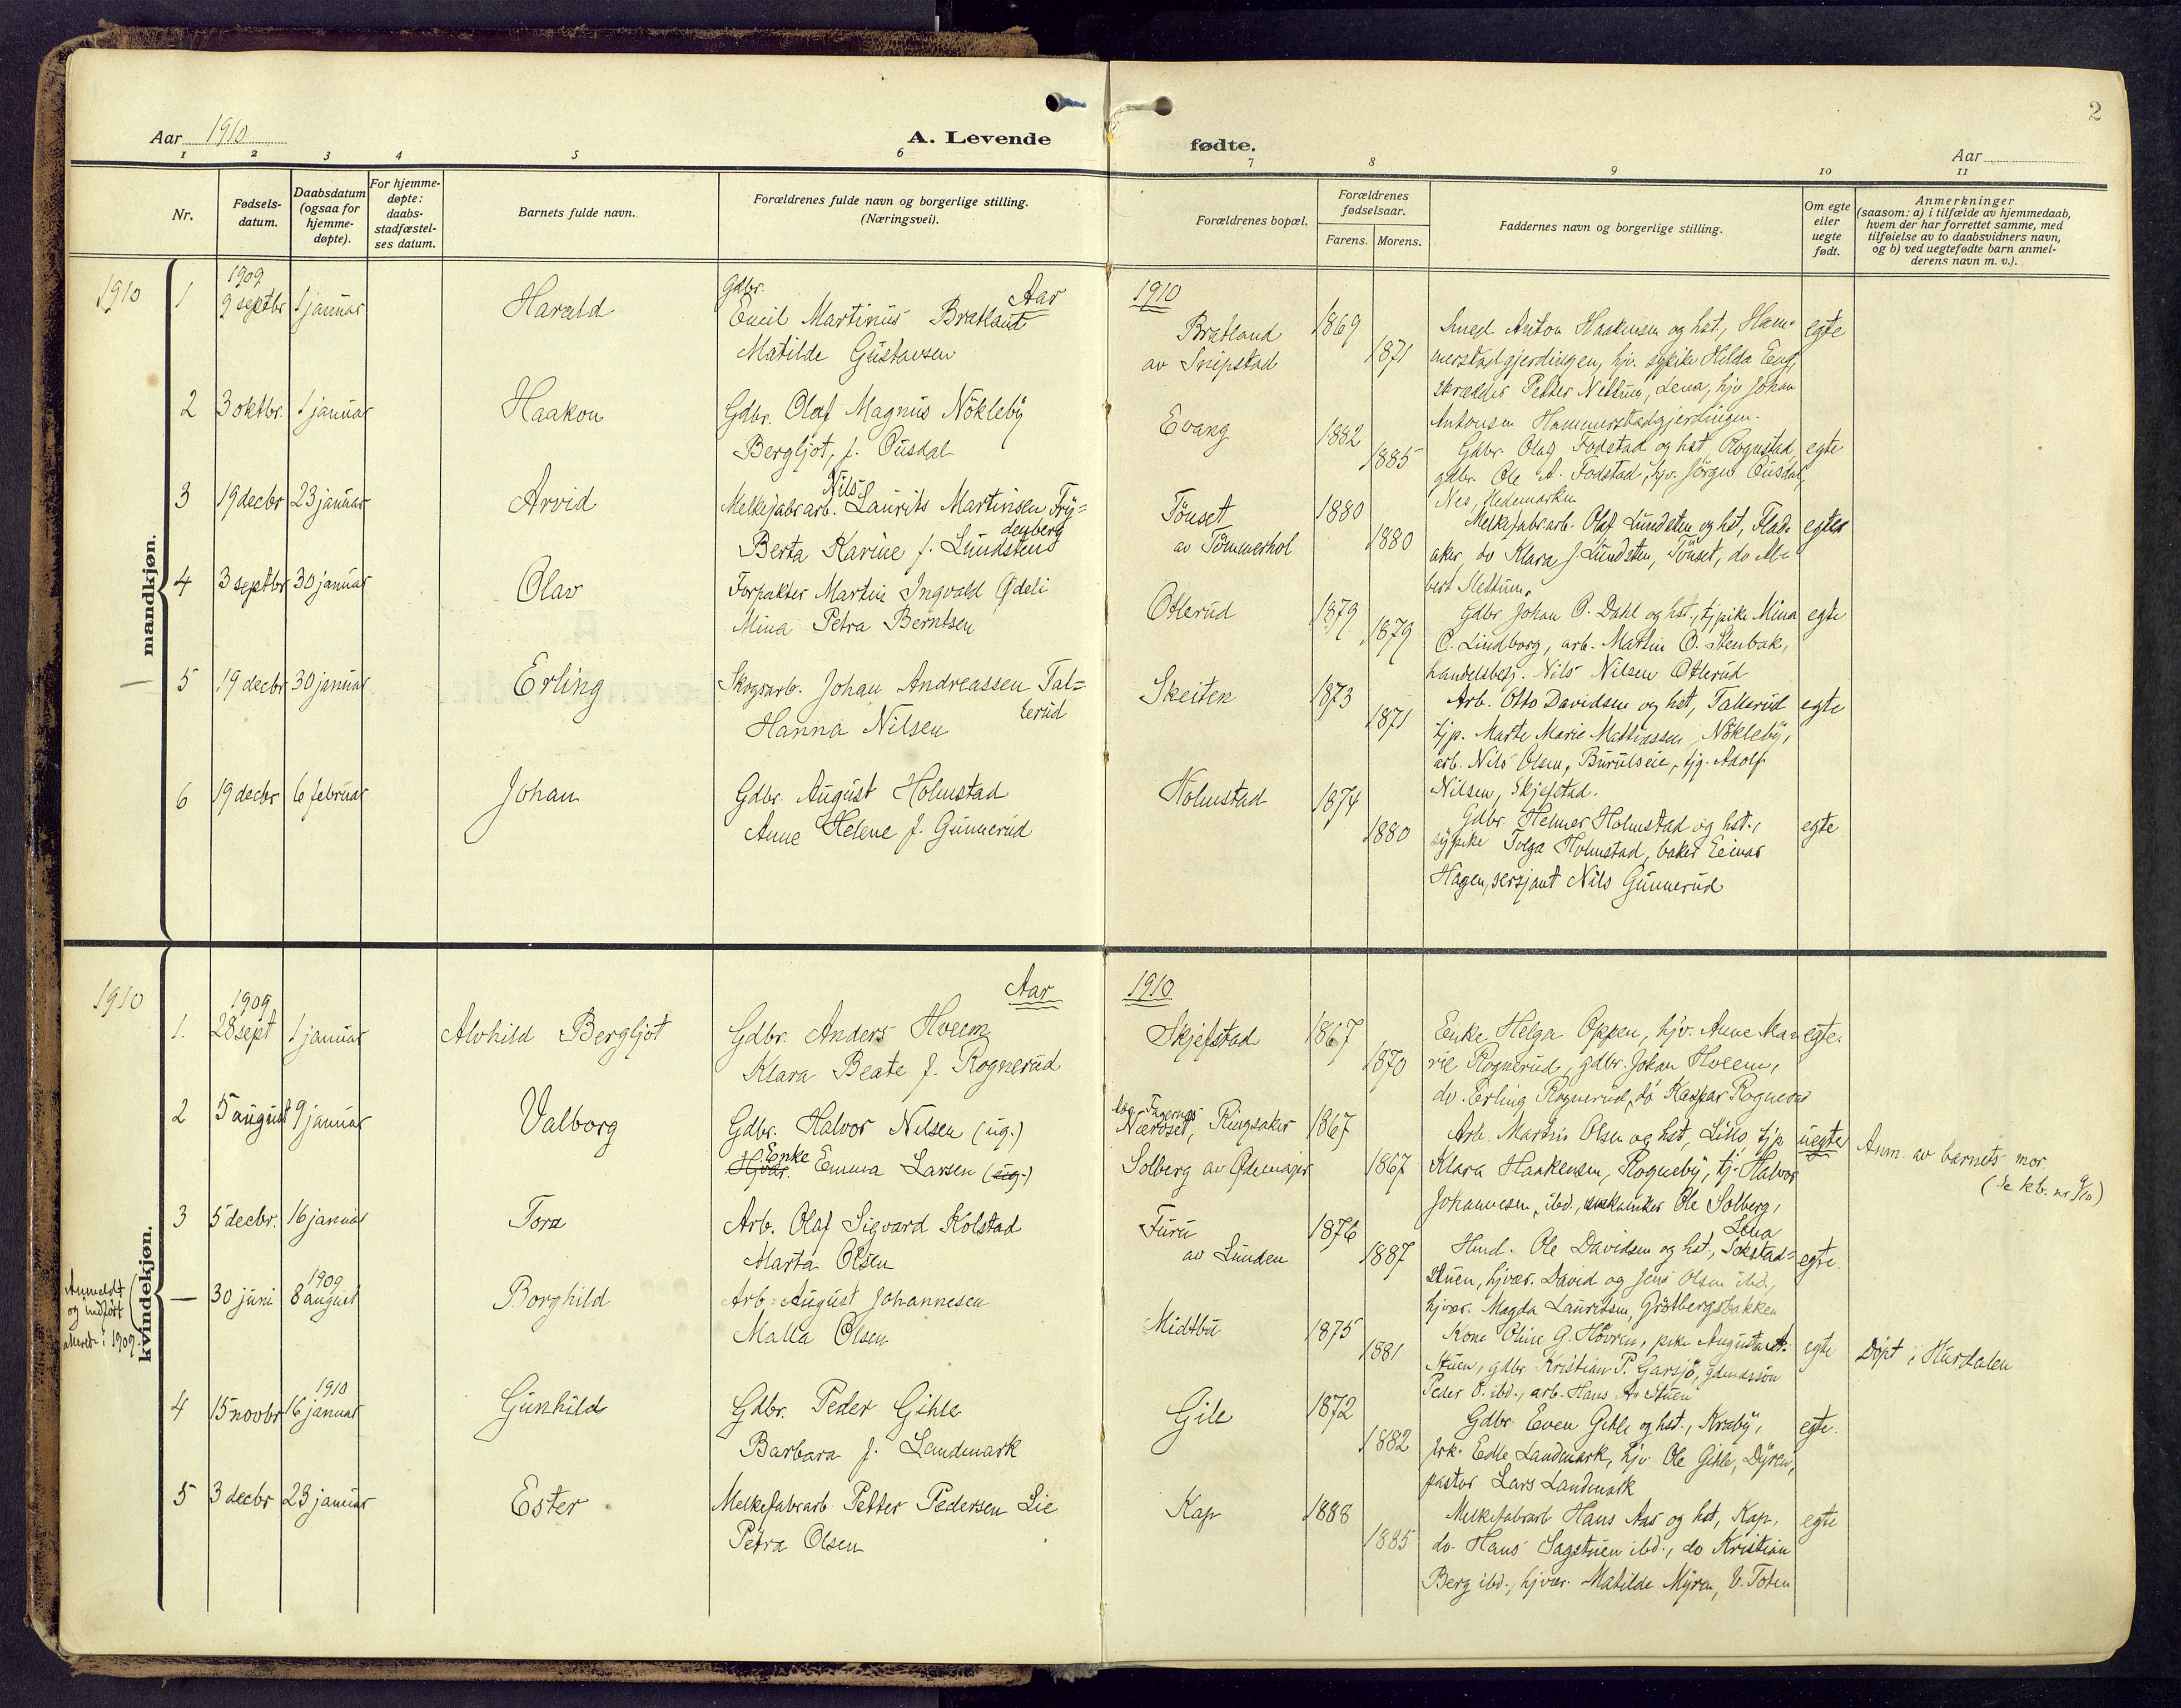 2
Aar 1910
A. Levende fødte.
Aar
1 2 3 4 5 6 7 8 9 10 11
Nr.
Fødsels-
datum.
Daabsdatum
(ogsaa for
hjemme-
døpte).
For hjemme-
døpte:
daabs-
stadfæstel-
ses datum.
Barnets fulde navn.
Forældrenes fulde navn og borgerlige stilling.
(Næringsvei).
Forældrenes bopæl.
Forældrenes
fødselsaar.
Farens. Morens.
Faddernes navn og borgerlige stilling.
Om egte
eller
uegte
født.
Anmerkninger
(saasom: a) i tilfælde av hjemmedaab,
hvem der har forrettet samme, med
tilføielse av to daabsvidners navn,
og b) ved uegtefødte barn anmel-
derens navn m. v.).
mandkjøn.
1910
Aar 1910
1
1909
9 septbr
1 januar
Harald
Gdbr.
Emil Martinus Bratland
Matilde Gustavsen
Bratland
av Snipstad
1869
1871
Smed Anton Haakensen og hst., Ham-
merstadgjerdingen, hjv. sypike Hilda Eng,
skrædder Petter Nettum, Lena, hjv Johan
Antonsen Hammerstadgjerdingen.
egte
2
3 oktbr.
1 januar
Haakon
Gdbr. Olaf Magnus Nökleby
Bergljot, f. Ousdal
Evang
1882
1885
Gdbr. Olaf Fodstad og hst, Rognstad,
gdbr. Ole A. Fodstad, hjv. Jörgen Ousdal,
Nes, Hedemarken
egte
3
19 decbr
23 januar
Arvid
Nils
Melkefabrarb. Laurits Martinsen Fry=
denberg
Berta Karine f. Lundsten
Tönset
av Tömmerhol
1880
1880
Melkefabrarb. Olaf Lundsten og hst, Flad-
aker, do Klara J. Lundsten, Tönset, do Al-
bert Slettum.
egte
4
3 septbr
30 januar
Olav
Forpakter Martin Ingvald Ødeli
Mina Petra Berntsen
Otterud
1879
1879
Gdbr. Johan O. Dahl og hst., tjpike Mina
C. Lindborg, arb. Martin O. Stenbak,
handelsbetj. Nils Nilsen Otterud
egte
5
19 decbr
30 januar
Erling
Skogsarb. Johan Andreassen Tal=
lerud
Hanna Nilsen
Skeiten
1873
1871
Arb. Otto Davidsen og hst, Tallerud
tjp. Marte Marie Mathiassen Nökleby,
arb. Nils Olsen, Burulseie, tjg. Adolf
Nilsen, Skjefstad.
egte
6
19 decbr
6 februar
Johan
Gdbr. August Holmstad
Anne Helene f. Gunnerud
Holmstad
1874
1880
Gdbr. Helmer Holmstad og hst.,
sypike Tolga Holmstad, baker Einar
Hagen, sersjant Nils Gunnerud
egte
kvindekjøn.
1910
Aar 1910
1.
1909
28 sept
1 januar
Alvhild Bergljot
Gdbr. Anders Hveem
Klara Beate f. Rognerud
Skjefstad
1867
1870
Enke Helga Oppen, hjv. Anne Ma-
rie Rognerud, gdbr. Johan Hveem,
do. Erling Rognerud, do Kaspar Rognerud
egte.
2
5 august
9 januar
Valborg
Gdbr. Halvor Nilsen (ug.)
Enke
Hjvær. Emma Larsen (ug.)
Nærdset, Ringsaker
Solberg av Ødemajer
1867
1867
Arb. Martin Olsen og hst, Lillo, tjp
Klara Haakensen, Rogneby, tj. Halvor
Johannesen, ibd., Ole Solberg,
Lena
uegte
Anm. av barnets mor.
(se kb. nr 9/10)
3
5 decbr.
16 januar
Tora
Arb. Olaf Sigvard Kolstad
Marta Olsen
Furu
av Lunden
1876
1887
Hmd. Ole Davidsen og hst., Sokstad=
stuen, hjvær. David og Jens Olsen ibd.,
hjvær. Magda Lauritsen, Gröttbergsbakken
egte.
Anmeldt
og indført
i 1909.
—
30 juni
1909
8 august
Borghild
Arb. August Johannesen
Malla Olsen
Midtbu
1875
1881
Kone Oline G. Hövren, pike Augusta A.
Stuen, gdbr Kristian P. Garsjö, gdmandsön
Peder O. ibd., arb. Hans A. Stuen
egte
Döpt i Hurdalen
4
15 novbr
1910
16 januar
Gunhild
Gdbr. Peder Gihle
Barbara f. Landmark
Gile
1872
1882
Gdbr. Even Gihle og hst., Kraby,
frk. Edle Landmark, hjv. Ole Gihle, Dyren,
pastor Lars Landmark
egte.
5
3 decbr
23 januar
Ester
Melkefabrarb Petter Pedersen Lie
Petra Olsen
Kap
1888
1885
Melkefabrarb Hans Aas og hst, Kap,
do. Hans Sagstuen ibd., do Kristian
Berg ibd., hjvær. Matilde Myren, V. Toten
egte